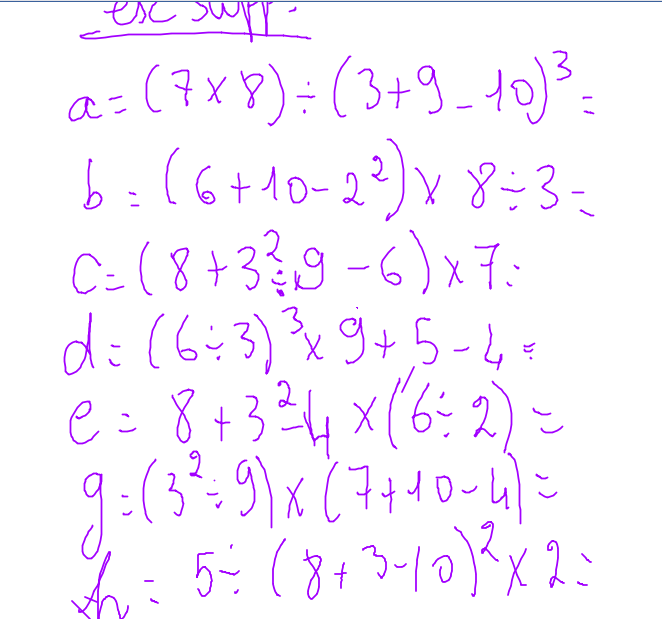 esc supp.
a = (7 × 8) ÷ (3 + 9 - 10)³ =
b = (6 + 10 - 2²) × 8 ÷ 3 =
c = (8 + 3² ÷ 9 - 6) × 7 =
d = (6 ÷ 3)³ × 9 + 5 - 4 =
e = 8 + 3² - 4 × (6 ÷ 2) =
g = (3² ÷ 9) × (7 + 10 - 4) =
h = 5 ÷ (8 + 3 - 10)² × 2 =